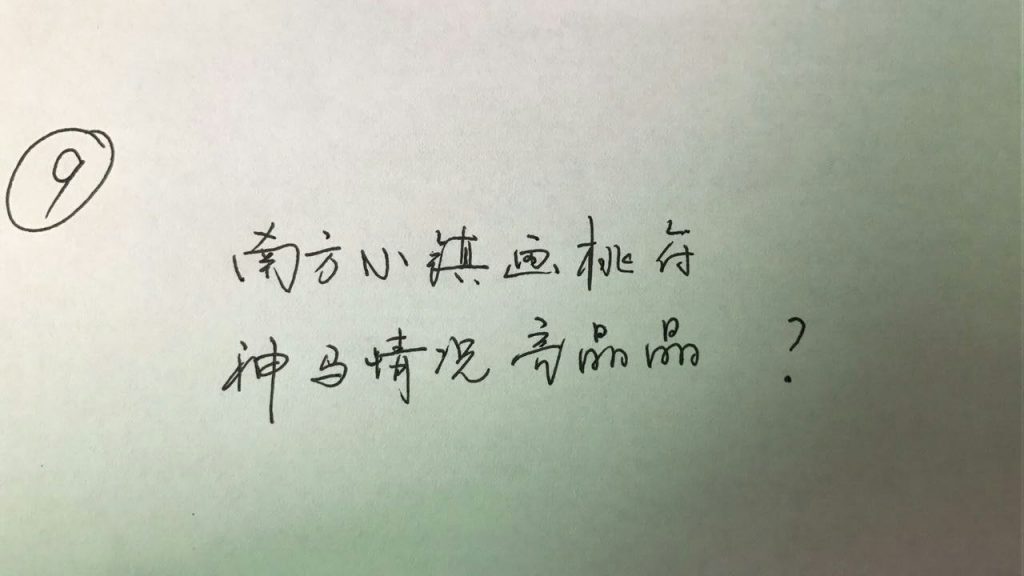 ⑨
南方小镇画桃符
神马情况亮晶晶?